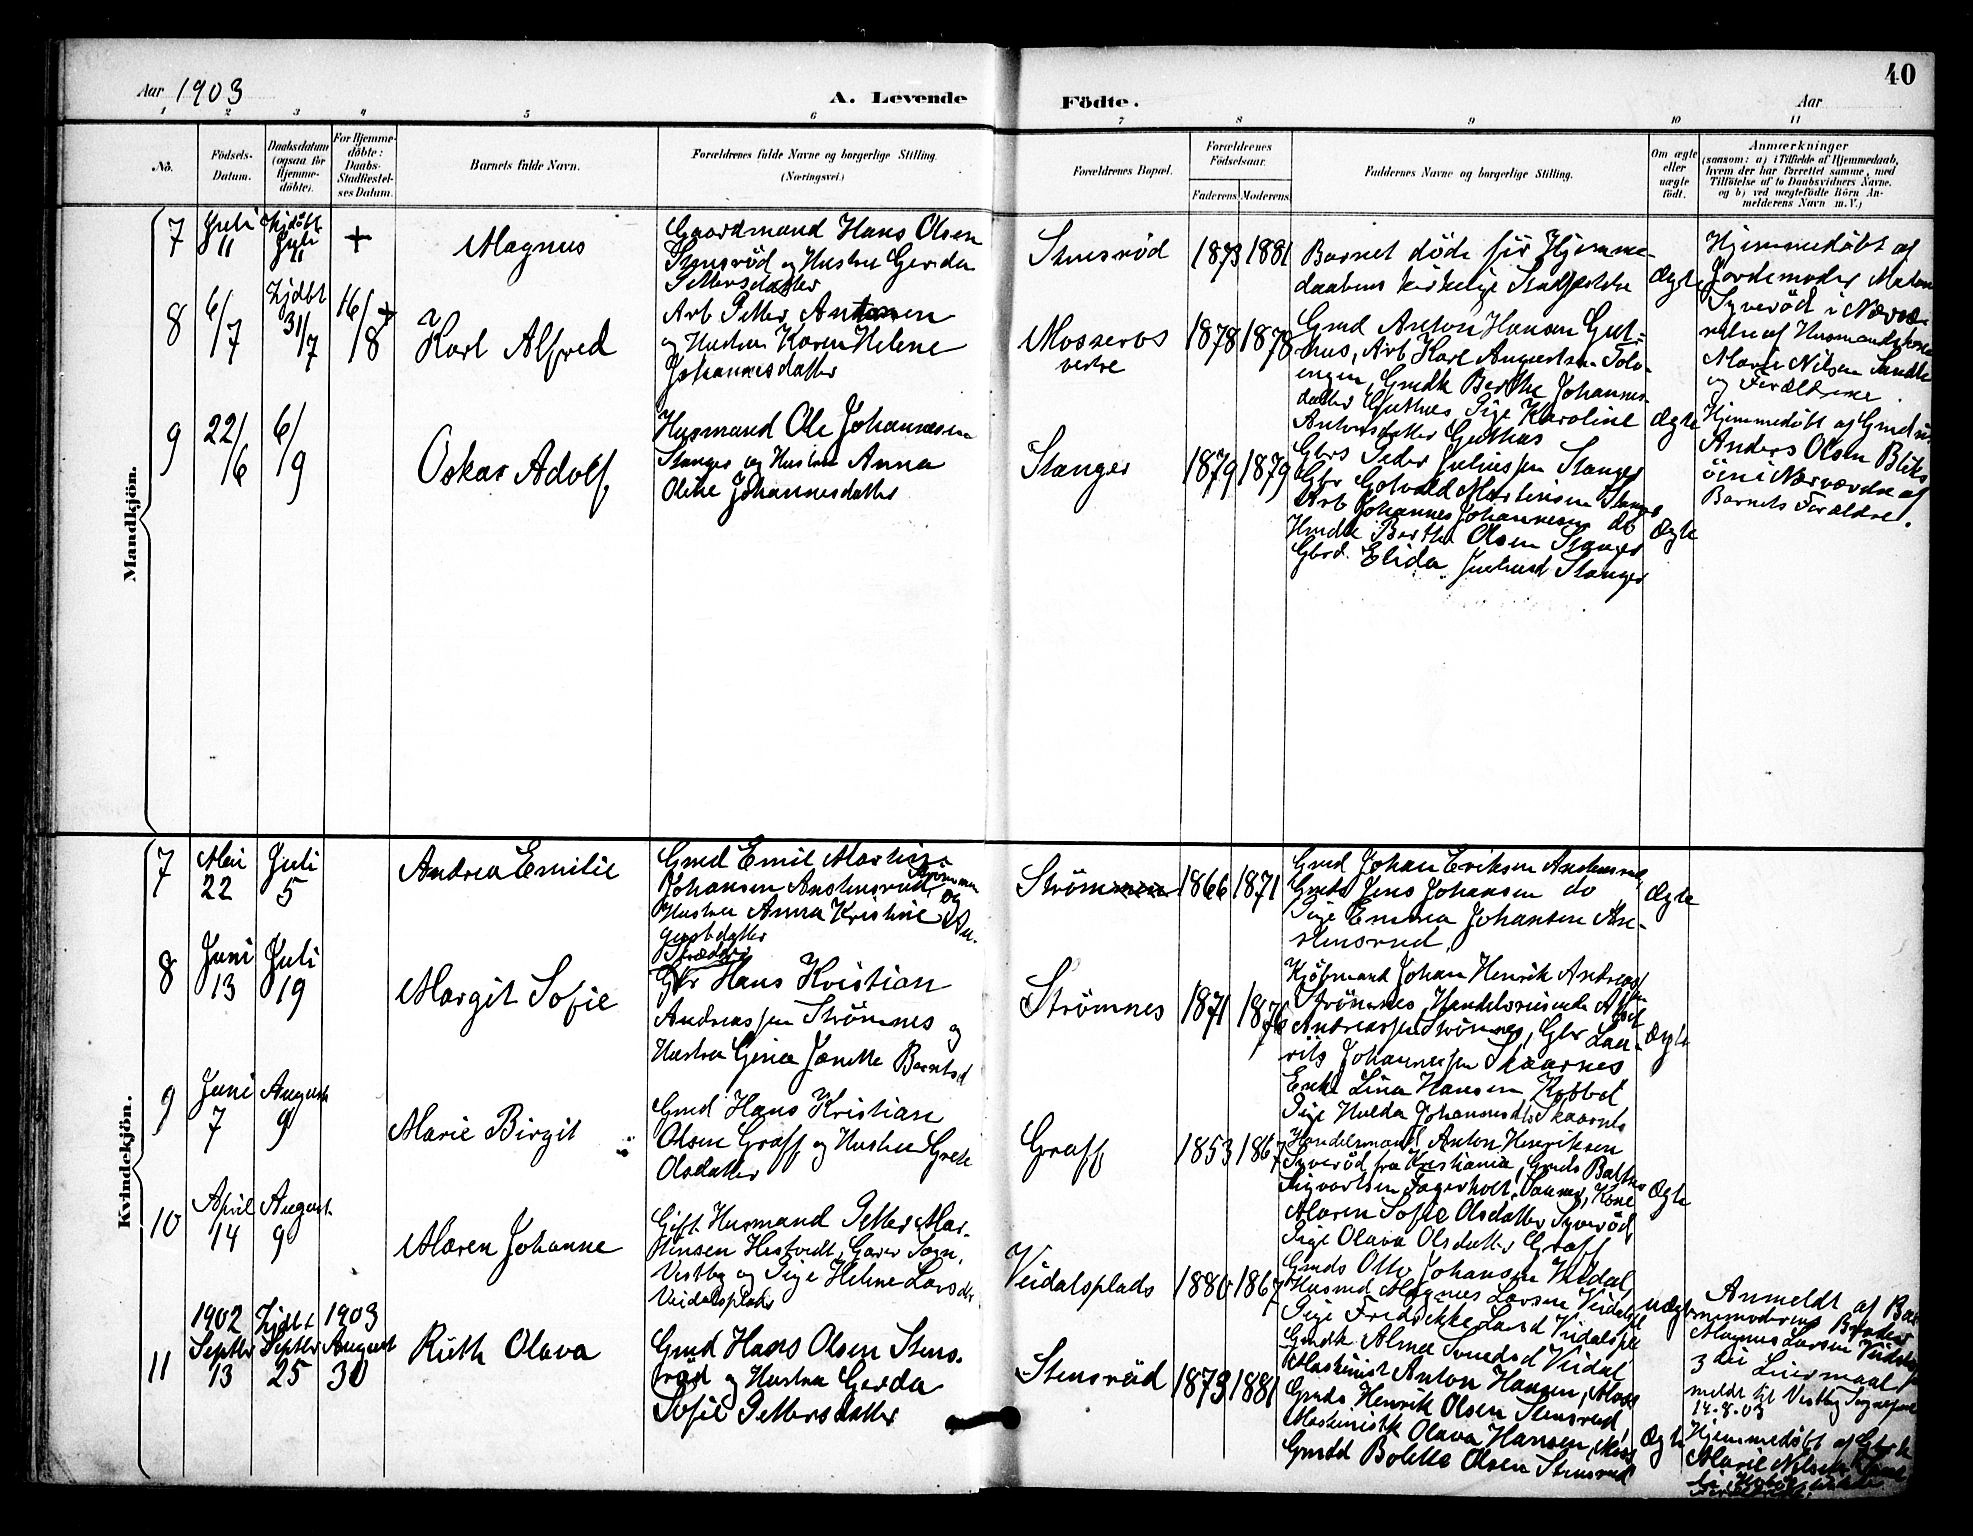 40
Aar 1903
A. Levende Födte.
Aar
1 2 3 4 5 6 7 8 9 10 11
No.
Födsels-
Datum.
Daabsdatum
(ogsaa for
Hjemme-
döbte).
For Hjemme-
döbte:
Daabs-
Stadfæstel-
ses Datum.
Barnets fulde Navn.
Forældrenes fulde Navne og borgerlige Stilling.
(Næringsvei.)
Forældrenes Bopæl.
Forældrenes
Födselsaar.
Faderens Moderens
Faddernes Navne og borgerlige Stilling.
Om ægte
eller
uægte
födt.
Anmærkninger
(saasom: a) i Tilfælde af Hjemmedaab,
hvem der har forrettet samme, med
Tilföielse af to Daabsvidners Navne,
og b) ved uægtefödte Börn An-
melderens Navn m. V.)
Mandkjön.
7
Juli
11
Hjdöbt
Juli
11
+
Magnus
Gaardmand Hans Olsen
Stensröd og Hustru Gerda
Pettersdatter
Stensröd
1873 1881
Barnet döde för Hjemme-
daabens kirkelige Stadfæstelse
Ægte
Hjemmedöbt af
Jordemoder
Syveröd i Nærvæ-
relse af Husmandskone
Marie Nilsen
og Forældrene.
8
6/7
Hjdöbt
31/7
16/8
+
Karl Alfred
Arb Petter Antonsen
og Hustru Karen Helene
Johannesdatter
Mosseros
vestre
1878 1878
Gmd Anton Hansen Gut-
hus, Arb Karl Augustsen Solv-
engen, Gmdk Berthe Johannes-
datter Guthus, Pige Karoline
Antonsdatter Guthus
Ægte
Hjemmedöbt af Gmd
Anders Olsen Bliks-
öien i Nærværelse af
Barnets Forældre.
9
22/6
6/9
Oskar Adolf
Husmand Ole Johannesen
Stanger og Hustru Anna
Oline Johannesdatter
Stanger
1879 1879
Gbrs Peder Juliussen Stanger
Gbr Gotvald Martinsen Stanger
Arb Johannes Johannesen do
Hmdk Berthe Olsen Stanger
Gbrd. Elida Juliusd Stanger
Ægte
Kvindekjön.
7
Mai
22
Juli
5
Andrea Emilie
Gmd Emil Martin
Johansen Anstensrud, Strömmen og
Hustru Anna Kristine Au-
gustdatter
Strömmen
1866 1871
Gmd Johan Eriksen Anstensrud
Gmds Jens Johansen do
Pige Emma Johansen An-
stensrud
Ægte
8
Juni
13
Juli
19
Margit Sofie
Gbr Hans Kristian
Andreassen Strömnes og
Hustru Gina Janette Berntsd
Strömnes
1871 1876
Kjöbmand Johan Henrik Andreas-
sen Strömnes, Handelsreisende
Andreassen Strömnes, Gbr Lau-
rits Johannessen Skaarnes
Enke Lina Hansen
Pige Hulda Johannesdtr Skaarnes
Ægte
9
Juni
7
August
9
Marie Birgit
Gmd Hans Kristian
Olsen Graff og Hustru Grete
Olsdatter
Graff
1853 1867
Handelsmand Anton Henriksen
Syveröd fra Kristiania, Gmds
Sigvartsen Fagerholt, Kone
Maren Sofie Olsdatter Syveröd
Pige Olava Olsdatter Graff
Ægte
10
April
14
August
9
Maren Johanne
Gift Husmand Petter Mar-
tinsen Sogn,
Vestby og Pige Helene Larsdtr
Veidalsplads
Veidalsplads
1880 1867
Gmds Otto Johansen Veidal
Husmd Magnus Larsen Veidalspl
Pige Fredrikke Larsd Veidalspl
Gmdk Alma Veidal
uægte
Anmeldt af Bar-
nemoderens Broder
Magnus Larsen Veidalspl
meldt til Vestby Sognepræst
14-8-03
11
1902
Septbr
13
Hjdbt
Septbr
25
1903
August
30
Ruth Olava
Gmd Hans Olsen Stens-
röd og Hustru Gerda
Sofie Pettersdatter
Stensröd
1873 1881
Maskinist Anton Hansen, Moss
Gmds Henrik Olsen Stensrud
Maskinistk Olava Hansen, Moss
Gmdd Bolette Olsen Stensrud
Ægte
Hjemmedöbt af
Marie Nilsen